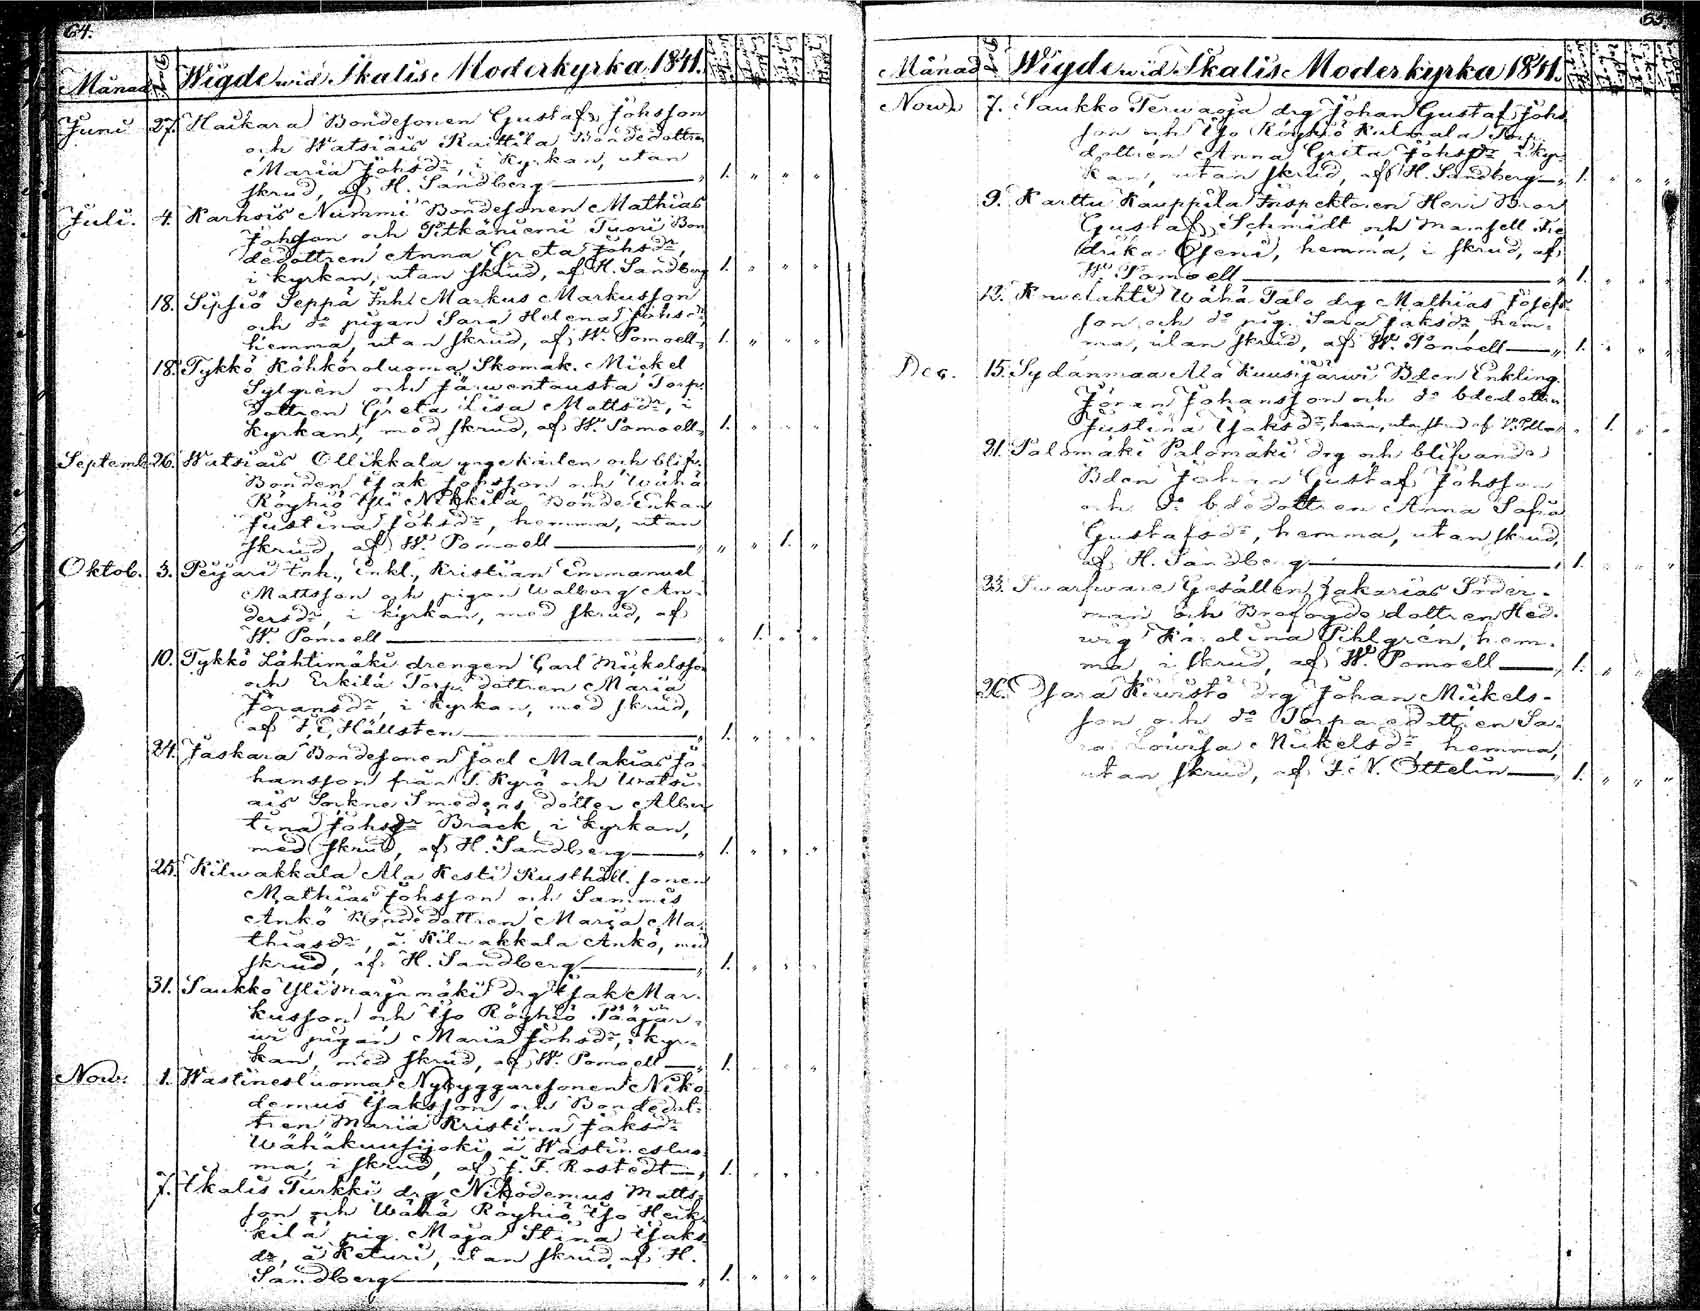 64.
Månad Dag. Wigde wid Ikalis Moderkyrka 1841.
Juni 27. Haikara Bondesonen Gustaf Johsson
och Watsiais Raittila Bondedottren
Maria Johsdr, i kyrkan, utan
skrud, af H. Sandberg — „ 1. „ „ „
Juli. 4. Karhois Nummi Bondesonen Mathias
Johsson och Pitkäniemi Tuori Bon
dedottren Anna Greta Johsdr,
i kyrkan, utan skrud, af H. Sandberg 1. „ „ „
18. Sipsiö Seppä Inh. Markus Markusson
och do pigan Sara Helena Johsdr,
hemma, utan skrud, af W. Pomoell „ 1. „ „ „
18. Tykkö Köhköroluoma Skomak. Mickel
Sylgrén och Järwentausta Torp.
dottren Greta Lisa Mattsdr, i
kyrkan, med skrud, af W. Pomoell „ 1. „ „ „
Septemb. 26. Watsiais Ollikkala ynge karlen och blif.
Bonden Isak Johsson och Wähä
Röyhiö Yli Nikkilä Bonde Enkan
Justina Johsdr, hemma, utan
skrud, af W. Pomoell — „ „ „ 1. „
Oktob. 3. Peijari Inh., Enkl., Kristian Emmanuel
Mattsson och pigan Walborg An-
dersdr, i kyrkan, med skrud, af
W. Pomoell — „ „ 1. „ „
10. Tykkö Lähtimäki drengen Carl Mickelsson
och Erkilä Torp. dottren Maria
Göransdr, i kyrkan, med skrud,
af F. E. Hällsten — „ 1. „ „ „
24. Jäskara Bondesonen Joel Malakias Jo-
hansson från S. Kyrö och Watsi-
ais Sockne Smedens dotter Alber
tina Johsdr Bräck, i kyrkan,
med skrud, af H. Sandberg — „ 1. „ „ „
25. Kilwakkala Ala Kesti Rusthåll. sonen
Mathias Johsson och Sammis
Ankö Bondedottren Maria Ma-
thiasdr, å Kilwakkala Ankö, med
skrud, af H. Sandberg — „ 1. „ „ „
31. Saukko Yli Marjamäki drg Isak Mar-
kusson och Iso Röyhiö Pääjär-
wi pigan Maria Johsdr, i kyr-
kan, med skrud, af W. Pomoell — „ 1. „ „ „
Now: 1. Wastinesluoma Nybyggaresonen Niko
demus Isaksson och Bondedot-
tren Maria Kristina Jaksdr
Wähäkuusijoki, å Wastineslus
ma, i skrud, af J. F. Rostedt — „ 1. „ „ „
7. Ikalis Turkki drg Nikodemus Matts-
son och Wähä Röyhiö, Iso Heik-
kilä pig. Maja Stina Isaks
dr, å Keturi, utan skrud, af H.
Sandberg — „ 1. „ „ „
65.
Månad Dag. Wigde wid Ikalis Moderkyrka 1841.
Now. 7. Saukko Terwaoja drg Johan Gustaf Johs
son och Iso Röyhiö Kulmala Torp.
dottren Anna Greta Johsdr, i kyr-
kan, utan skrud, af H. Sandberg — „ 1. „ „ „
9. Karttu Kauppila Inspektoren Herr Bror
Gustaf Schmidt och Mamsell Fre
drika Oseni, hemma, i skrud, af
W. Pomoell — „ 1. „ „ „
12. Kowelahti Wähä Talo drg Mathias Josefs-
son och do pig. Sara Jaksdr, hem-
ma, utan skrud, af W. Pomoell — „ 1. „ „ „
Dec. 15. Sydänmaa Ala Kuusijärwi Bden Enkling.
Jöran Johansson och do bdedottren
Justina Isaksdr, hemma, utan skrud af „ 1. „ „
21. Palomäki Palomäki drg och blifvande
Bden Johan Gustaf Johsson
och do bdedottren Anna Sofia
Gustafsdr, hemma, utan skrud,
af H. Sandberg — „ 1. „ „ „
23. Swarfware Gesällen Zakarias Söder-
man och Brofogde dottren Hed-
wig Karolina Pihlgrén, hem-
ma, i skrud, af W. Pomoell — „ 1. „ „ „
26. Osara Kuusto drg Johan Mickels-
son och do Torparedottren Sa-
ra Lowisa Mickelsdr, hemma,
utan skrud, af F. N. Ottelin — „ 1. „ „ „